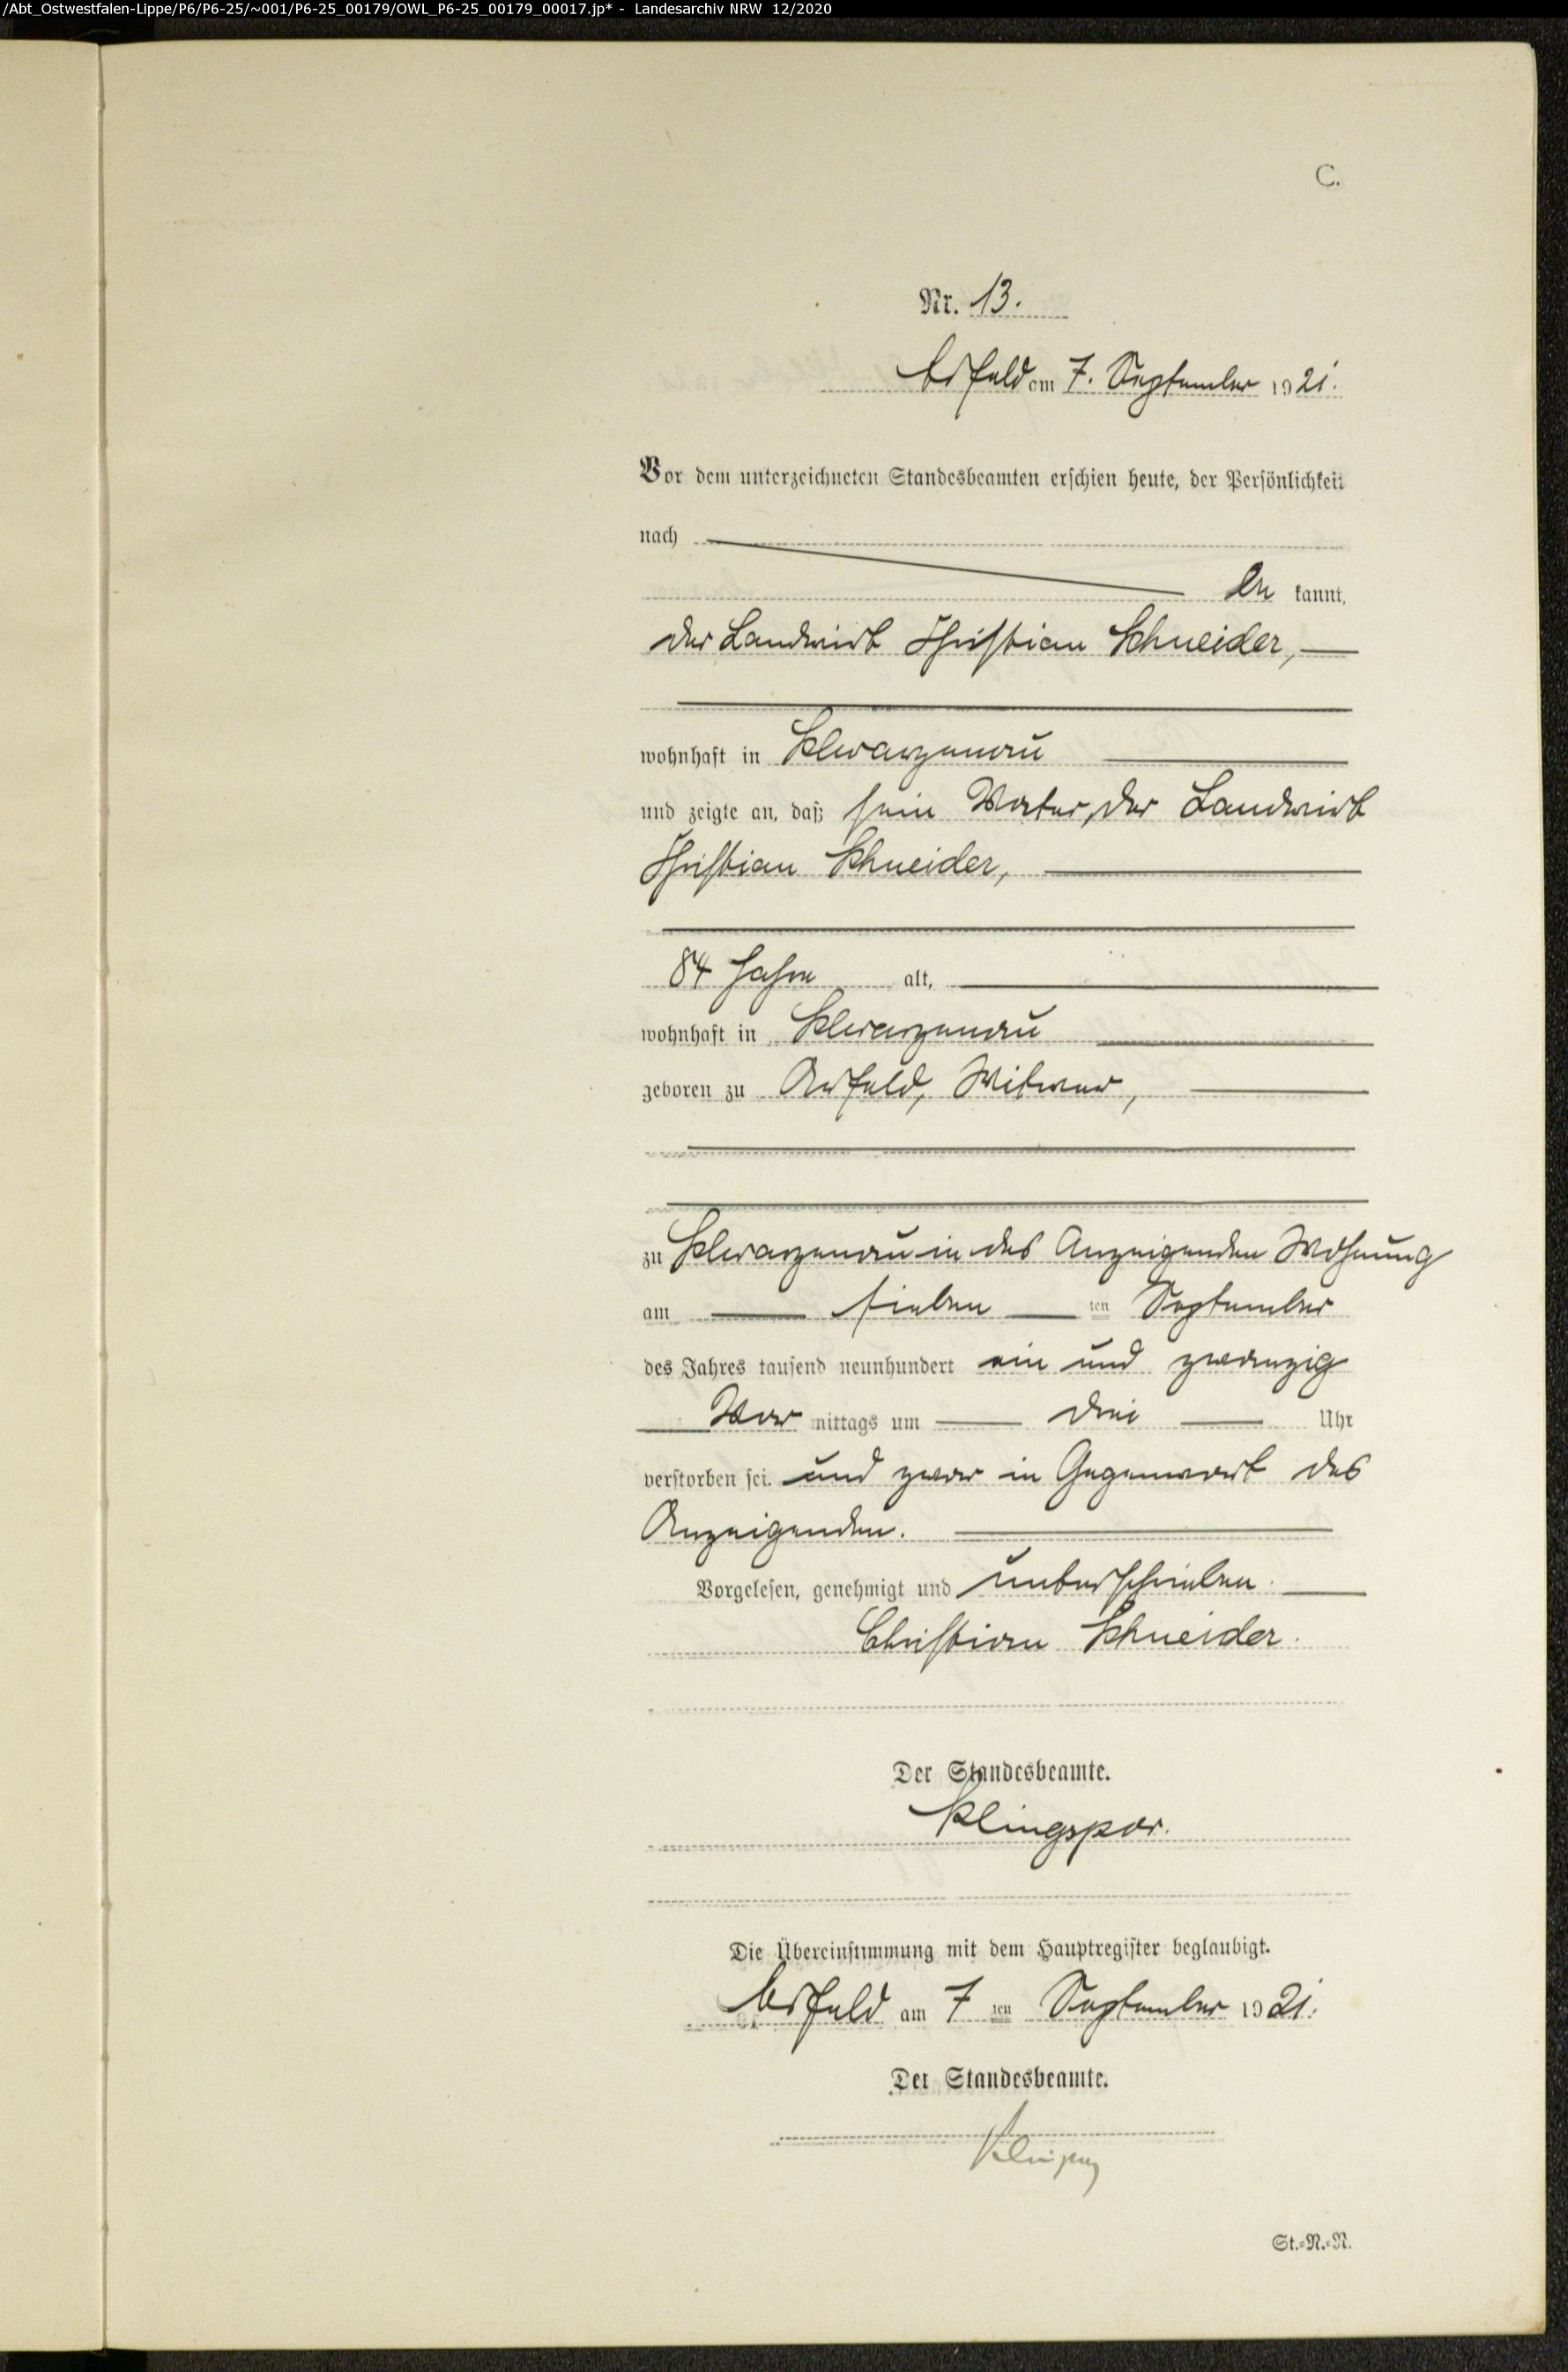 /Abt_Ostwestfalen-Lippe/P6/P6-25/~001/P6-25_00179/OWL_P6-25_00179_00017.jp* - Landesarchiv NRW 12/2020
C.
Nr. 13.
am 7. September 1921.
Vor dem unterzeichneten Standesbeamten erschien heute, der Persönlichkeit
nach
be kannt,
der Landwirt Christian Schneider,
wohnhaft in Schwarzenau
und zeigte an, daß sein Vater, der Landwirt
Christian Schneider,
84 Jahre alt,
wohnhaft in Schwarzenau
geboren zu Arfeld, Witwer,
zu Schwarzenau in des Anzeigenden Wohnung
am sieben ten September
des Jahres tausend neunhundert ein und zwanzig
Vor mittags um drei Uhr
verstorben sei. und zwar in Gegenwart des
Anzeigenden.
Vorgelesen, genehmigt und unterschrieben.
Christian Schneider.
Der Standesbeamte.
Klingspor.
Die Übereinstimmung mit dem Hauptregister beglaubigt.
Arfeld am 7 ten September 1921.
Der Standesbeamte.
St.=R.=N.